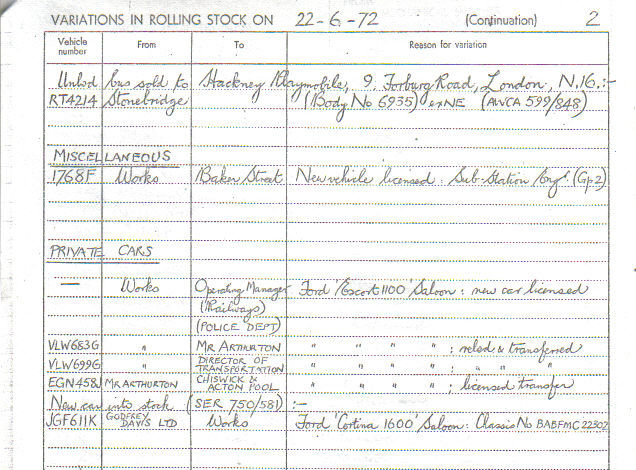 VARIATIONS IN ROLLING STOCK ON 22-6-72 (Continuation) 2
Vehicle number From To Reason for variation
Unlsd bus sold to Hackney Playmobile, 9, Forburg Road, London, N.16.:-
RT4214 Stonebridge (Body No 6935) exNE (AWCA 599/848)
MISCELLANEOUS
1768F Works Baker Street New vehicle licensed: Sub-Station Engr (Gp2)
PRIVATE CARS
— Works Operating Manager Ford 'Escort 1100' Saloon: new car licensed
(Railways)
(POLICE DEPT)
VLW683G " MR ARTHURTON " " " " ; relsd & transferred
VLW699G " DIRECTOR OF TRANSPORTATION " " " " ; " " "
EGN458J MR ARTHURTON CHISWICK & ACTON POOL " " " " ; licensed transfer
New car into stock (SER 750/581) :-
JGF611K GODFREY DAVIS LTD Works Ford 'Cortina 1600' Saloon: Classis No BABFMC 22302